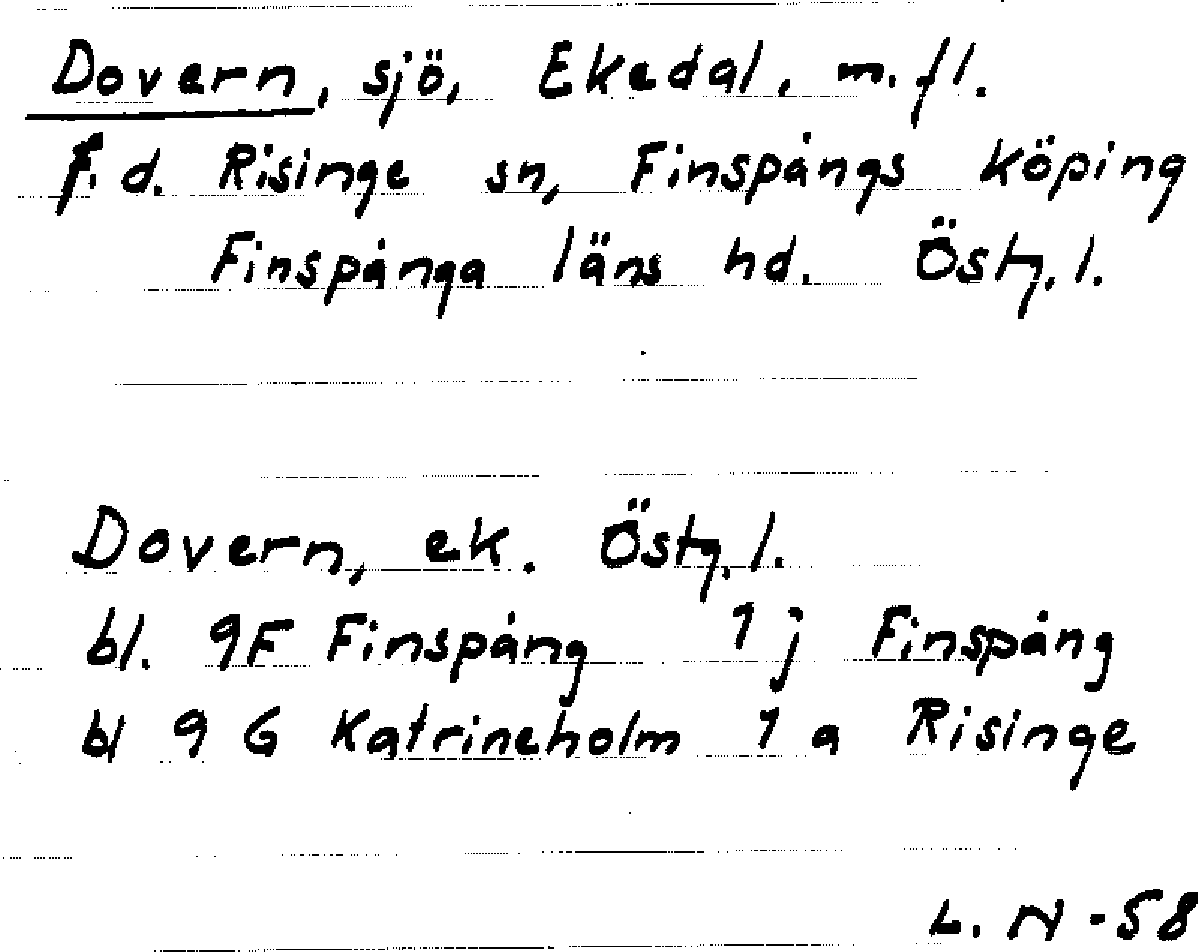 Dovern, sjö, Ekedal, m.fl.
f.d. Risinge sn, Finspångs köping
Finspånga läns hd. Östg.l.
Dovern, ek. Östg.l.
bl. 9F Finspång 1j Finspång
bl 9 G Katrineholm 1 a Risinge
L. N -58